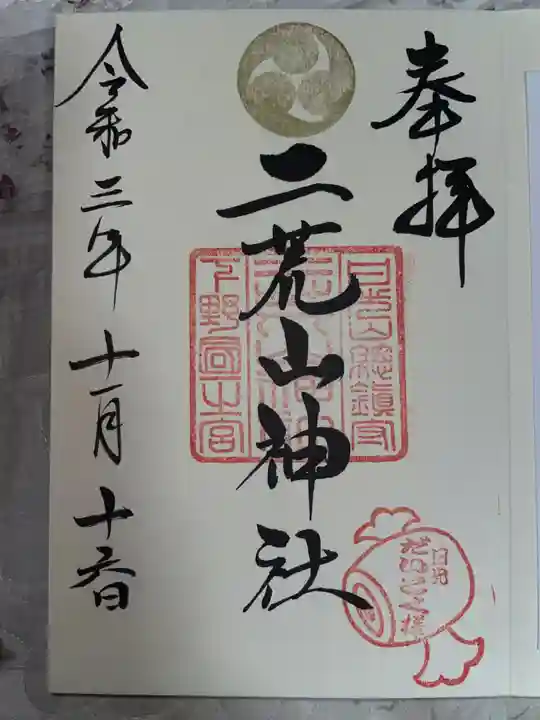 奉拝
二荒山神社
日光山總鎮守
下野國一之宮
日光
だいこく様
令和三年十一月十六日